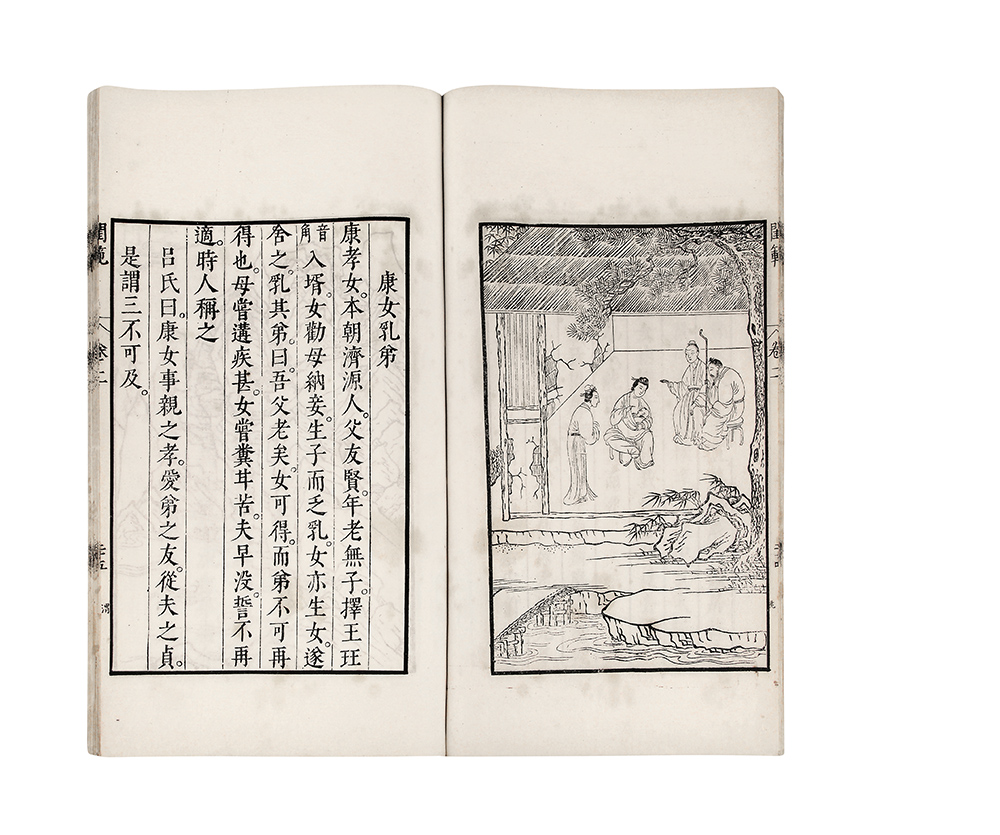 閨範
卷二
康女乳弟
康孝女。本朝濟源人。父友賢。年老無子。擇王玨
音角入壻。女勸母納妾。生子而乏乳。女亦生女。遂
舍之。乳其弟。曰。吾父老矣。女可得。而弟不可再
得也。母嘗遘疾甚。女嘗糞甘苦。夫早没。誓不再
適。時人稱之
呂氏曰。康女事親之孝。愛弟之友。從夫之貞。
是謂三不可及。
閨範
卷二